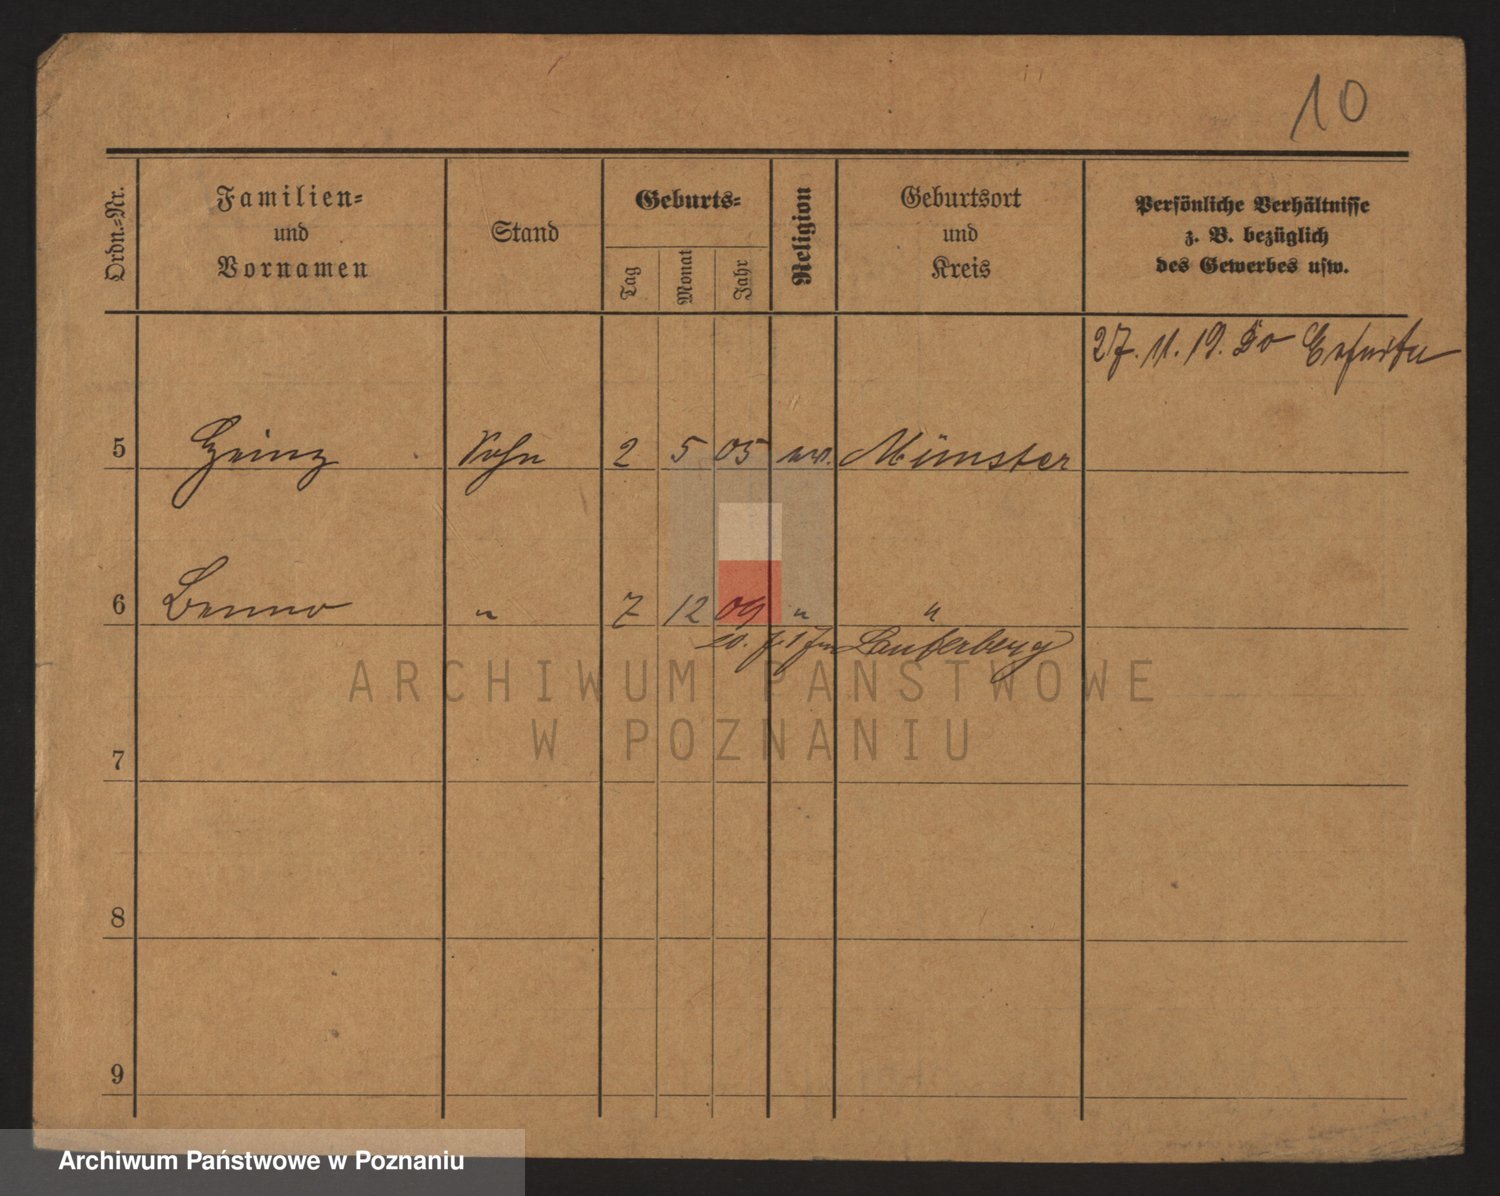 10
Ordn.-Nr.
Familien-
und
Vornamen
Stand
Geburts-
Tag
Monat
Jahr
Religion
Geburtsort
und
Kreis
Persönliche Verhältnisse
z. B. bezüglich
des Gewerbes usw.
27. 11. 19.
5 Heinz Sohn 2 5 05 ev. Münster
6 Benno " 7 12 09 " "
Lauterberg
ARCHIWUM PAŃSTWOWE
W POZNANIU
7
8
9
Archiwum Państwowe w Poznaniu